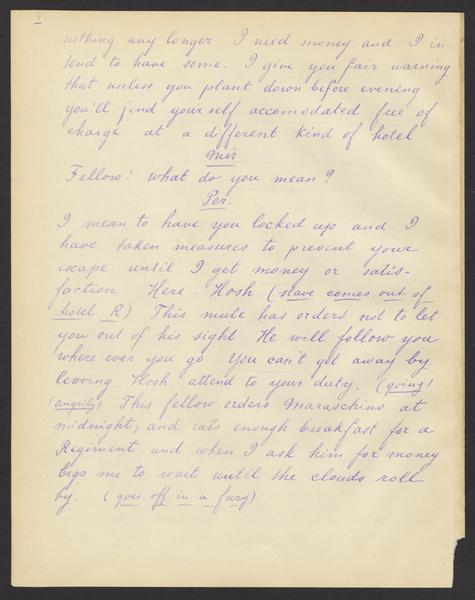 4
nothing any longer. I need money, and I in.
tend to have some. I give you fair warning
that unless you plant down before evening
you'll find yourself accomodated free of
charge at a different kind of hotel
Mir
Fellow! what do you mean?
Per.
I mean to have you locked up and I
have taken measures to prevent your
escape until I get money or satis-
faction. Here. Hosh (slave comes out of
hotel R) This mute has orders not to let
you out of his sight. He will follow you
where ever you go You can't get away by
leaving. Hosh, attend to your duty. (going)
(angrily) This fellow orders Maraschino at
midnight, and eats enough breakfast for a
Regiment. and when I ask him for money
begs me to wait until the clouds roll
by. (goes off in a fury)